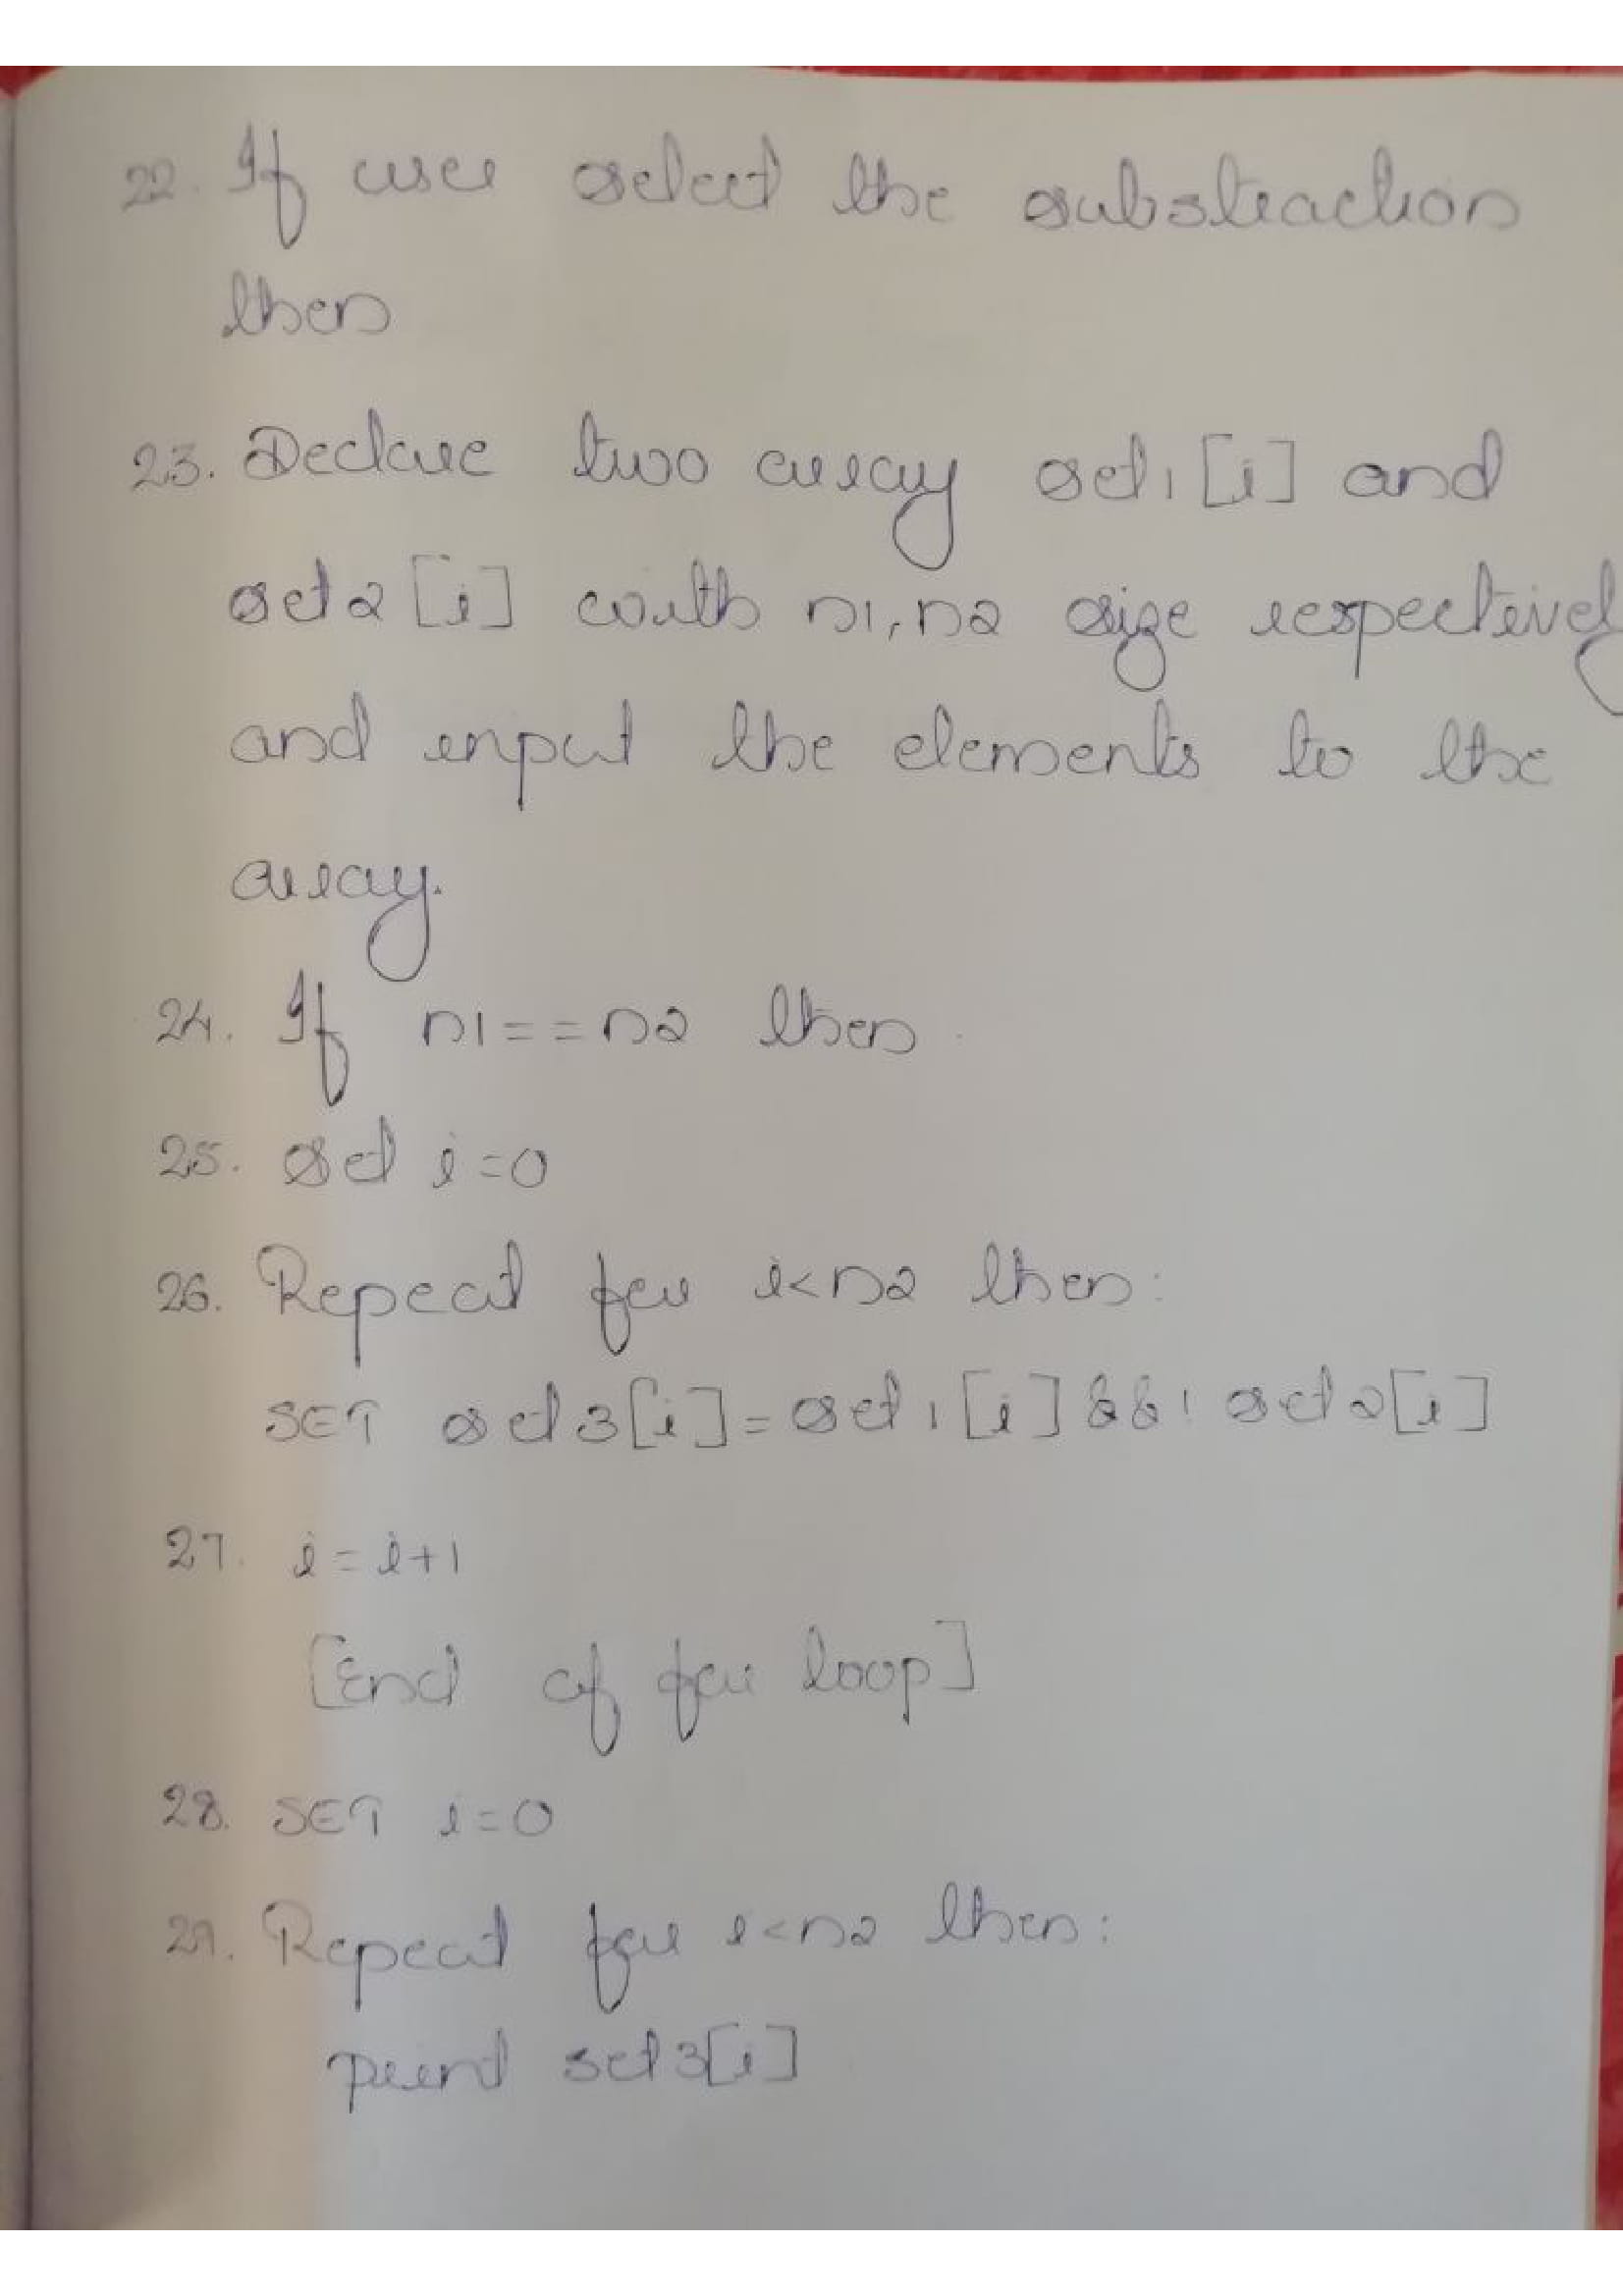 22. If user select the substraction
then
23. Declare two array set1[i] and
set2[i] with n1, n2 size respectively
and input the elements to the
array.
24. If n1==n2 then
25. set i=0
26. Repeat for i<n2 then:
SET set3[i]=set1[i]&&! set2[i]
27. i=i+1
[End of for loop]
28. SET i=0
29. Repeat for i<n2 then:
print set3[i]